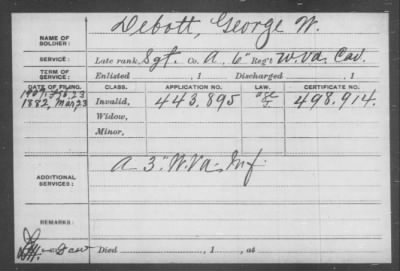 NAME OF SOLDIER: Debott, George W.
SERVICE: Late rank, Sgt. Co. A, 6" Reg't W.Va. Cav.
TERM OF SERVICE: Enlisted , 1 Discharged , 1
DATE OF FILING. CLASS. APPLICATION NO. LAW. CERTIFICATE NO.
23
1882, Mar 23 Invalid, 443.895 498.914.
Widow,
Minor,
ADDITIONAL SERVICES: A 3" W.Va. Inf
REMARKS:
Died , 1 , at